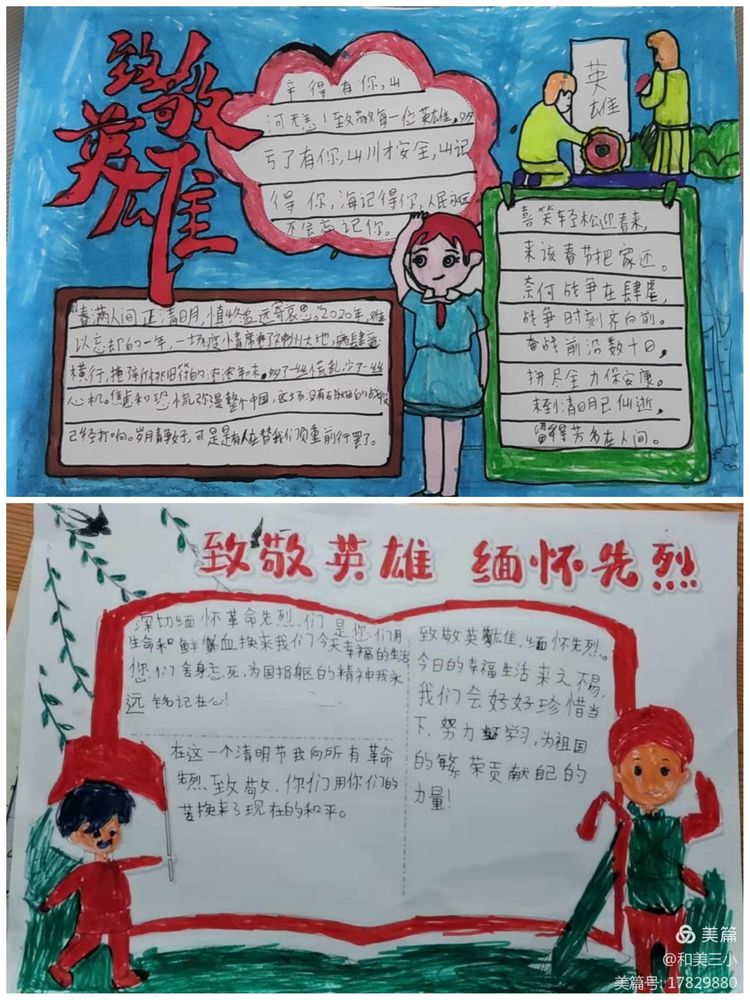 致敬
英雄
幸得有你,山
河无恙!致敬每一位英雄,
亏了有你,山川才安全,山记
得你,海记得你,人民永远
不会忘记你。
英
雄
喜笑轻松迎春来,
来该春节把家还。
奈何战争在肆虐,
战争时刻齐向前。
奋战前沿数十日,
拼尽全力保安康。
未到清明已仙逝,
留得芳名在人间。
"春满人间正清明,慎终追远寄哀思。"2020年,难
以忘却的一年,一场疫情席卷了神州大地,病肆虐
横行,
心机。焦虑和恐慌弥漫整个中国,这场没有硝烟的战
已经打响。岁月静好,可是是有人在替我们负重前行罢了。
致敬英雄 缅怀先烈
深切缅怀革命先烈们是您们用
生命和鲜血换来我们今天幸福的生活
您们舍身忘死,为国捐躯的精神我永
远铭记在心!
在这一个清明节我向所有革命
先烈致敬,你们用你们的
苦换来了现在的和平。
致敬英雄,缅怀先烈。
今日的幸福生活来之不易,
我们会好好珍惜当
下,努力学习,为祖国
的繁荣贡献自己的
力量!
美篇
@和美三小
美篇号:17829880